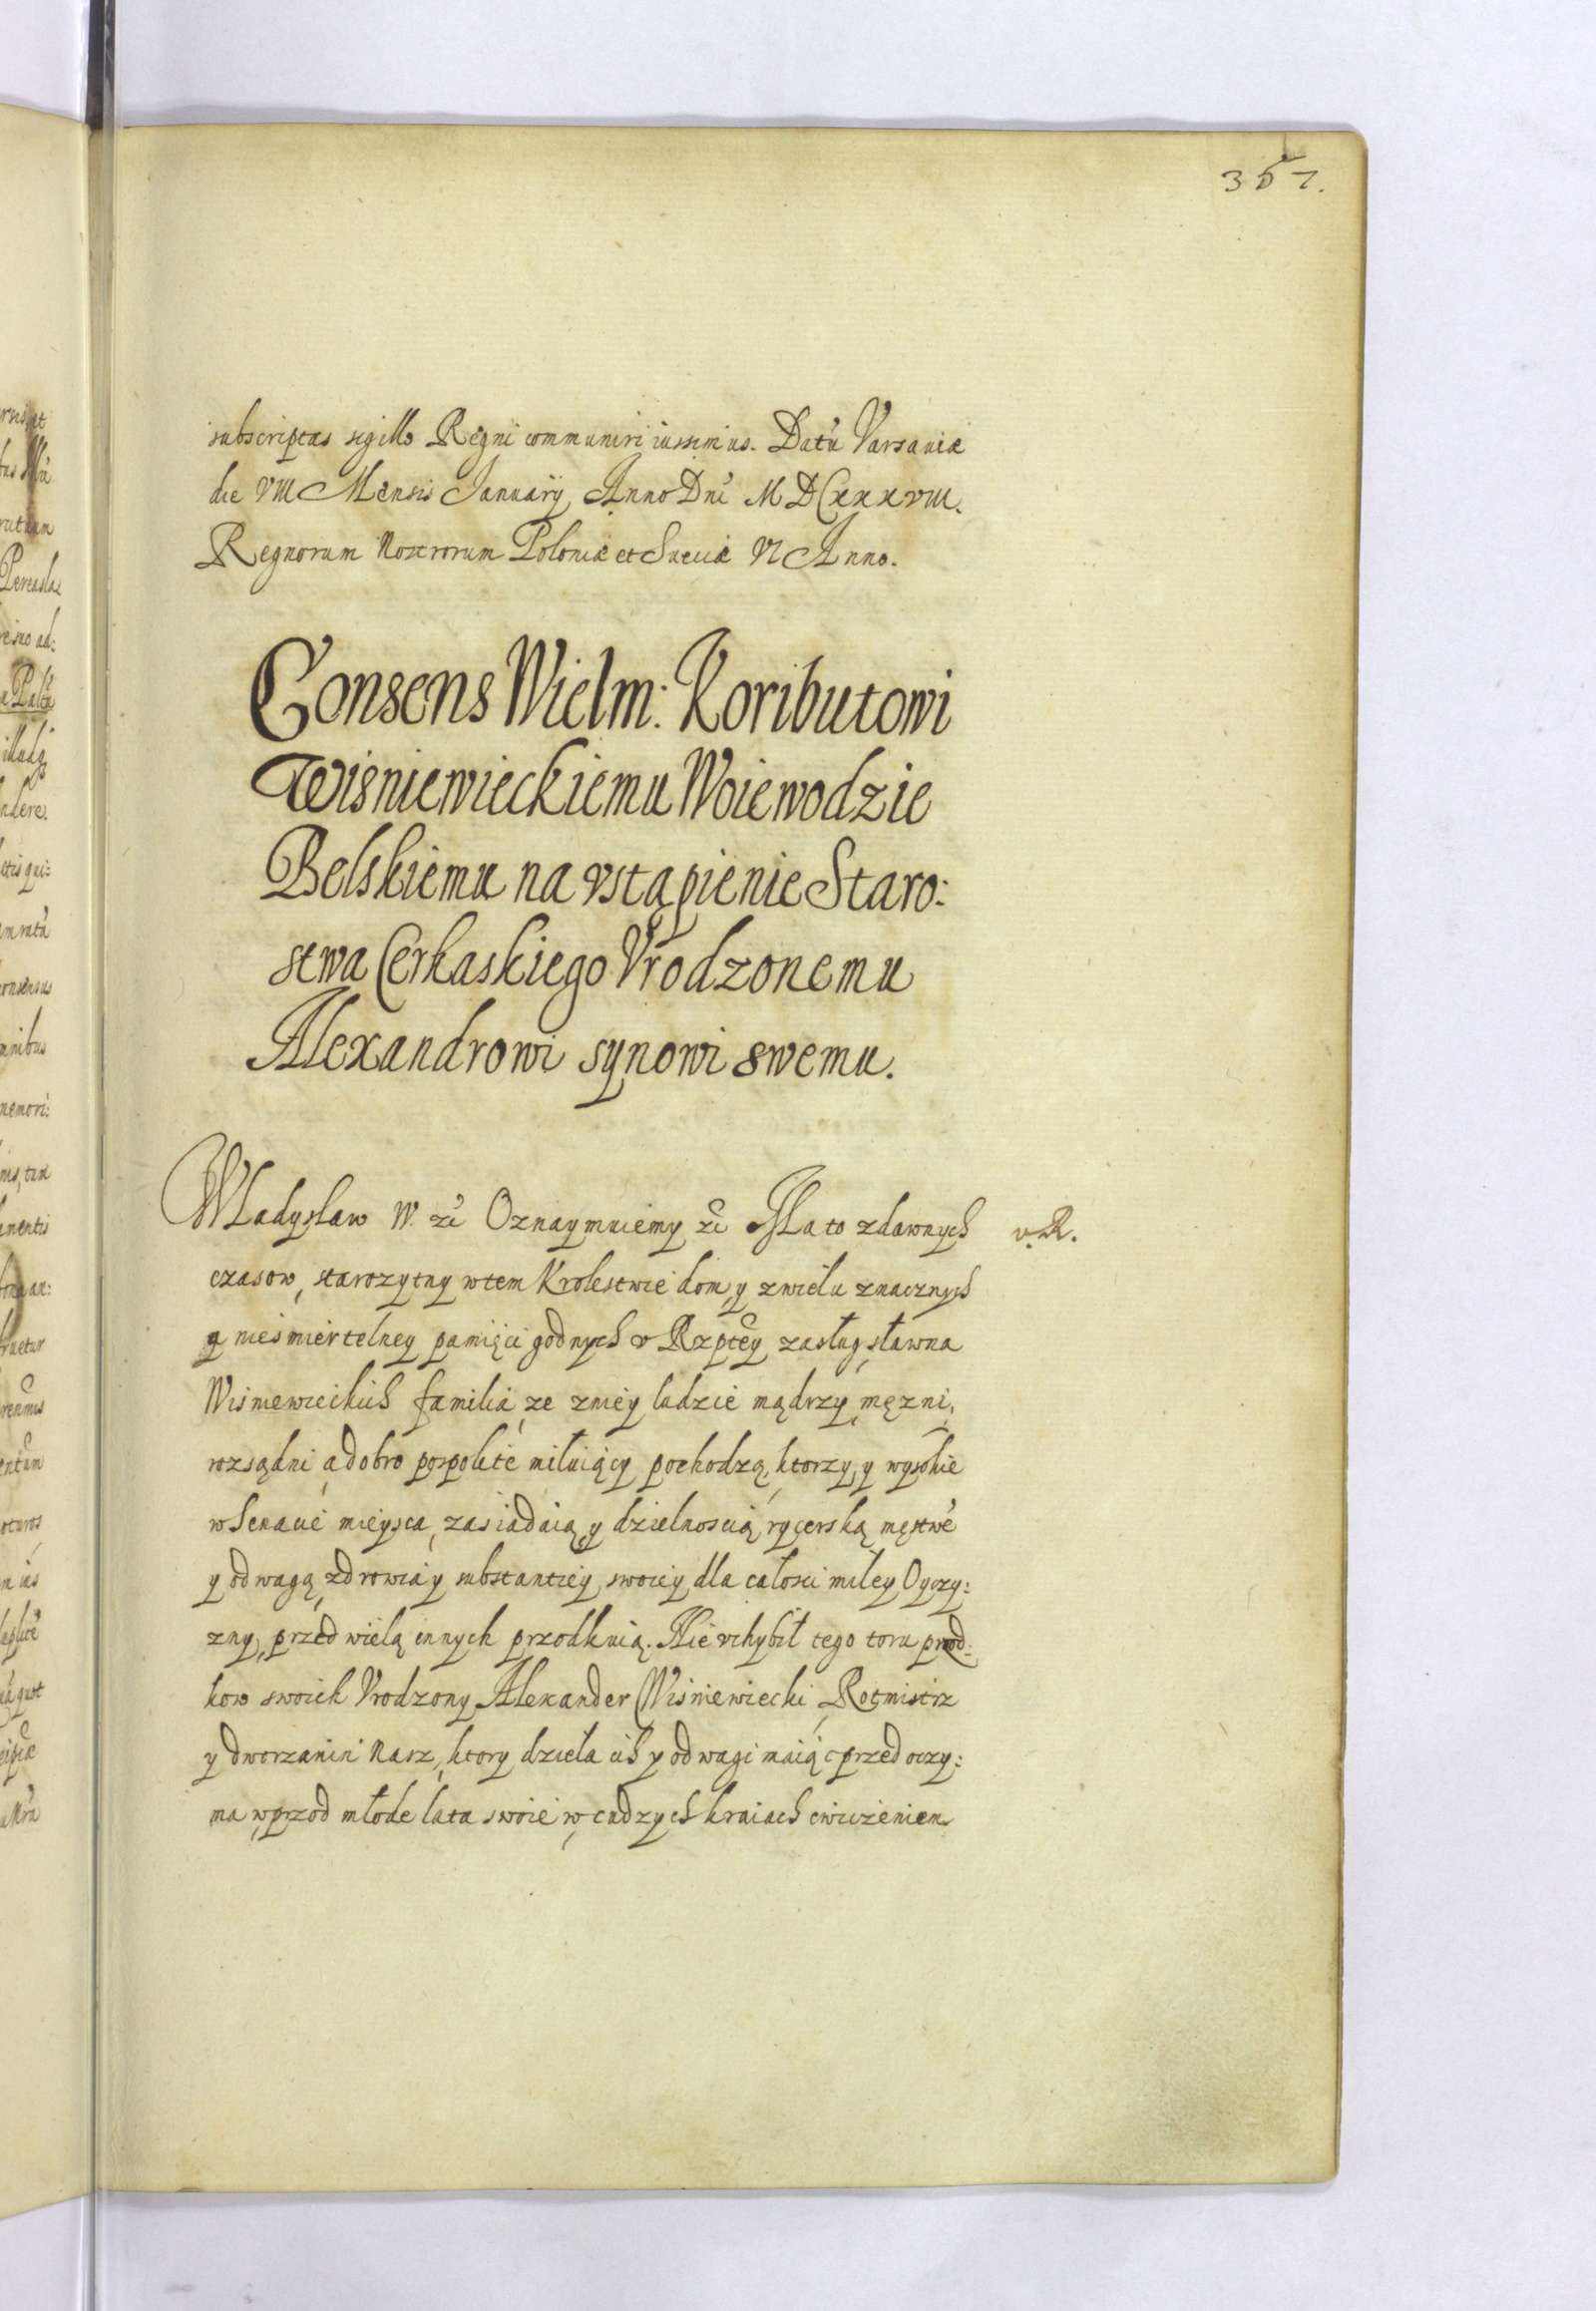 357.
subscriptas sigillo Regni communiri iussimus. Datũ Varsaviæ
die VIII Mensis Januarÿ Anno Dnĩ MDCxxxvııı.
Regnorum Nostrorum Poloniæ et Sueciæ VI Anno.
Consens Wielm: Koributowi
Wisniewieckiemu Woiewodzie
Belskiemu na vstąpienie Staro:
stwa Cerkaskiego Vrodzonemu
Alexandrowi synowi swemu.
Wladyslaw IV. etc Oznaymuiemy etc Jsz Ma to zdawnych
v. R.
czasow, starozytny wtem Krolestwie dom, y zwielu znacznych
y niesmiertelney pamięci godnych v Rzptey zasług, sławna
Wisniewieckich familia, ze zniey ludzie mądrzy, męzni,
rozsądni, a dobro pospolite miłuiący pochodzą, ktorzy, y wysokie
w Senacie mieysca, zasiadaią, y dzielnoscią rycerską, męstwẽ
y odwagą zdrowia, y substantiey swoiey dla całosci miley Oyczy:
zny, przed wielą innych przodkuią. Nie vchybił tego toru przod:
kow swoich Vrodzony Alexander Wisniewiecki, Rotmistrz
y dworzanin Nasz, ktory dzieła ich y odwagi maiąc przed oczy:
ma, wprzod młode lata swoie, w cudzych kraiach cwiczeniem